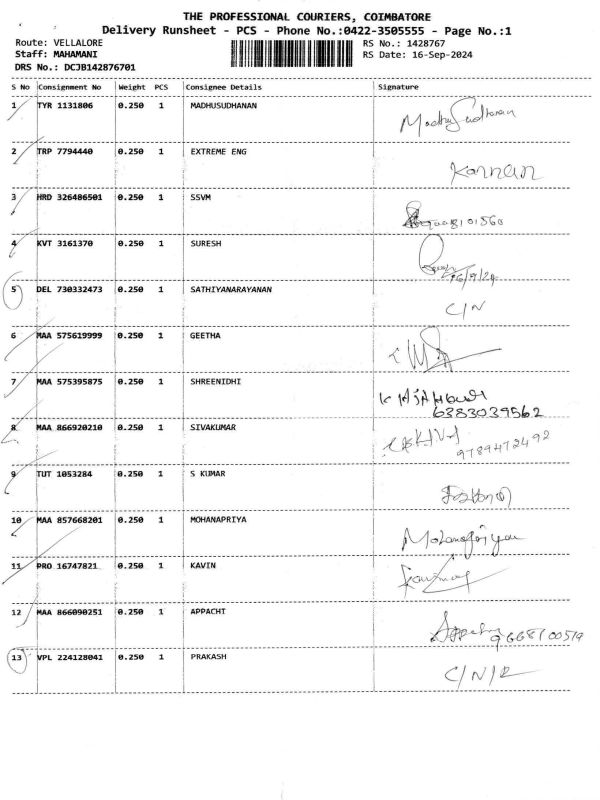 THE PROFESSIONAL COURIERS, COIMBATORE
Delivery Runsheet - PCS - Phone No.:0422-3505555 - Page No.:1
Route: VELLALORE RS No.: 1428767
Staff: MAHAMANI RS Date: 16-Sep-2024
DRS No.: DCJB142876701
S No Consignment No Weight PCS Consignee Details Signature
1 TYR 1131806 0.250 1 MADHUSUDHANAN Madhu Sudhanan
2 TRP 7794440 0.250 1 EXTREME ENG Kannan
3 HRD 326486501 0.250 1 SSVM
4 KVT 3161370 0.250 1 SURESH
16/9/24
5 DEL 730332473 0.250 1 SATHIYANARAYANAN C/N
6 MAA 575619999 0.250 1 GEETHA
7 MAA 575395875 0.250 1 SHREENIDHI
6383039562
8 MAA 866920210 0.250 1 SIVAKUMAR
9789472492
9 TUT 1053284 0.250 1 S KUMAR
10 MAA 857668201 0.250 1 MOHANAPRIYA
11 PRO 16747821 0.250 1 KAVIN
12 MAA 866090251 0.250 1 APPACHT
13 VPL 224128041 0.250 1 PRAKASH C/N/R